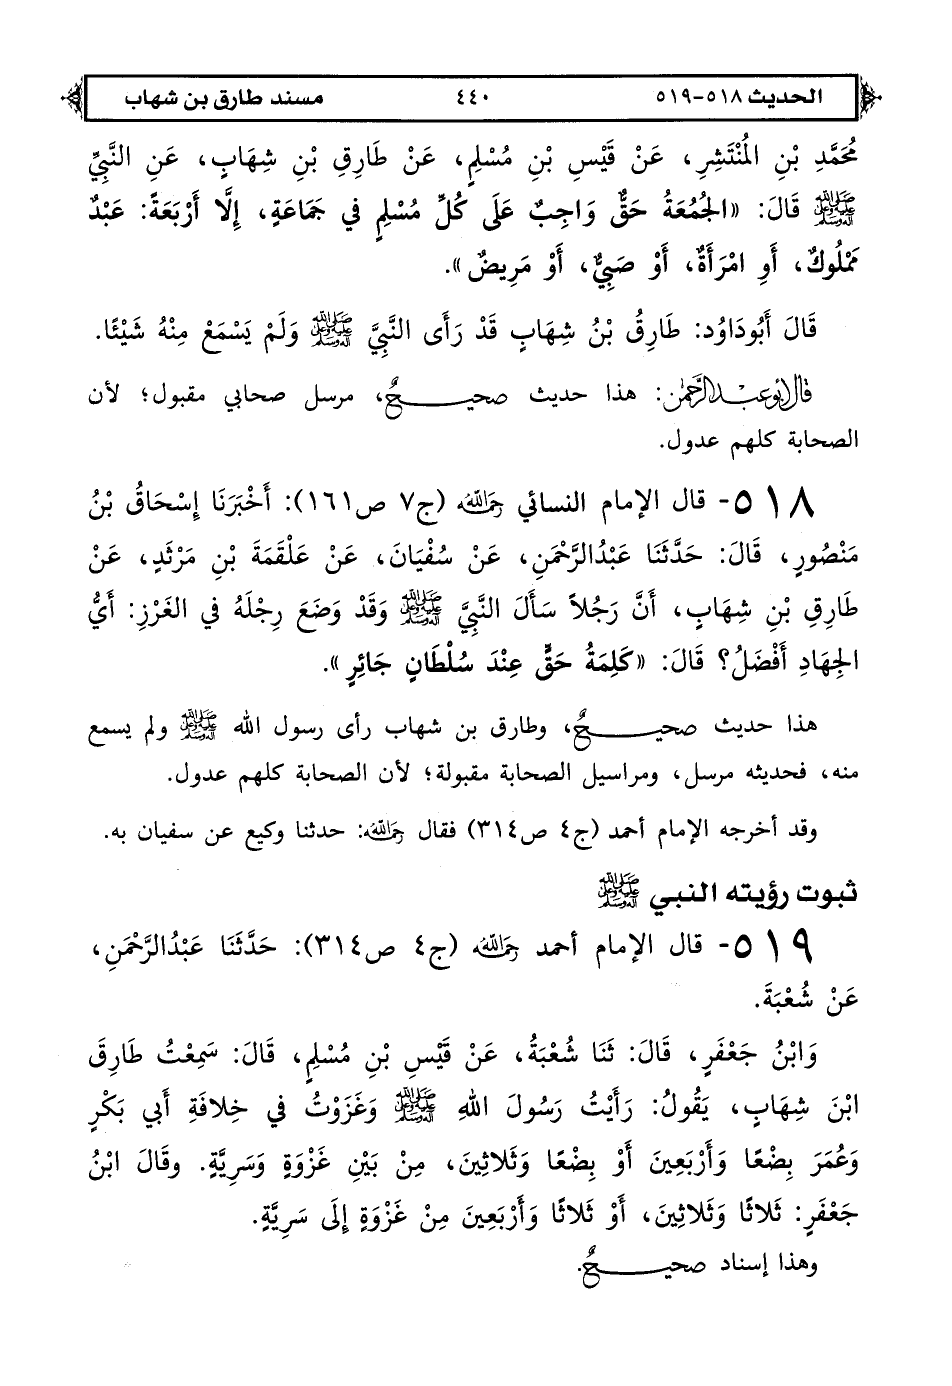 الحديث ٥١٨-٥١٩ ٤٤٠ مسند طارق بن شهاب
مُحَمَّدِ بْنِ الْمُنْتَشِرِ، عَنْ قَيْسِ بْنِ مُسْلِمٍ، عَنْ طَارِقِ بْنِ شِهَابٍ، عَنِ النَّبِيِّ
ﷺ قَالَ: «الْجُمُعَةُ حَقٌّ وَاجِبٌ عَلَى كُلِّ مُسْلِمٍ فِي جَمَاعَةٍ، إِلَّا أَرْبَعَةً: عَبْدٌ
مَمْلُوكٌ، أَوِ امْرَأَةٌ، أَوْ صَبِيٌّ، أَوْ مَرِيضٌ».
قَالَ أَبُودَاوُد: طَارِقُ بْنُ شِهَابٍ قَدْ رَأَى النَّبِيَّ ﷺ وَلَمْ يَسْمَعْ مِنْهُ شَيْئًا.
قال أبو عبد الرحمن: هذا حديث صحيحٌ، مرسل صحابي مقبول؛ لأن
الصحابة كلهم عدول.
٥١٨- قال الإمام النسائي رَحِمَهُ اللهُ (ج٧ ص١٦١): أَخْبَرَنَا إِسْحَاقُ بْنُ
مَنْصُورٍ، قَالَ: حَدَّثَنَا عَبْدُالرَّحْمَنِ، عَنْ سُفْيَانَ، عَنْ عَلْقَمَةَ بْنِ مَرْثَدٍ، عَنْ
طَارِقِ بْنِ شِهَابٍ، أَنَّ رَجُلاً سَأَلَ النَّبِيَّ ﷺ وَقَدْ وَضَعَ رِجْلَهُ فِي الغَرْزِ: أَيُّ
الجِهَادِ أَفْضَلُ؟ قَالَ: «كَلِمَةُ حَقٍّ عِنْدَ سُلْطَانٍ جَائِرٍ».
هذا حديث صحيحٌ، وطارق بن شهاب رأى رسول الله ﷺ ولم يسمع
منه، فحديثه مرسل، ومراسيل الصحابة مقبولة؛ لأن الصحابة كلهم عدول.
وقد أخرجه الإمام أحمد (ج٤ ص٣١٤) فقال رَحِمَهُ اللهُ: حدثنا وكيع عن سفيان به.
ثبوت رؤيته النبي ﷺ
٥١٩- قال الإمام أحمد رَحِمَهُ اللهُ (ج٤ ص٣١٤): حَدَّثَنَا عَبْدُالرَّحْمَنِ،
عَنْ شُعْبَةَ.
وَابْنُ جَعْفَرٍ، قَالَ: ثَنَا شُعْبَةُ، عَنْ قَيْسِ بْنِ مُسْلِمٍ، قَالَ: سَمِعْتُ طَارِقَ
ابْنَ شِهَابٍ، يَقُولُ: رَأَيْتُ رَسُولَ اللهِ ﷺ وَغَزَوْتُ فِي خِلافَةِ أَبِي بَكْرٍ
وَعُمَرَ بِضْعًا وَأَرْبَعِينَ أَوْ بِضْعًا وَثَلاثِينَ، مِنْ بَيْنِ غَزْوَةٍ وَسَرِيَّةٍ. وقَالَ ابْنُ
جَعْفَرٍ: ثَلاثًا وَثَلاثِينَ، أَوْ ثَلاثًا وَأَرْبَعِينَ مِنْ غَزْوَةٍ إِلَى سَرِيَّةٍ.
وهذا إسناد صحيحٌ.